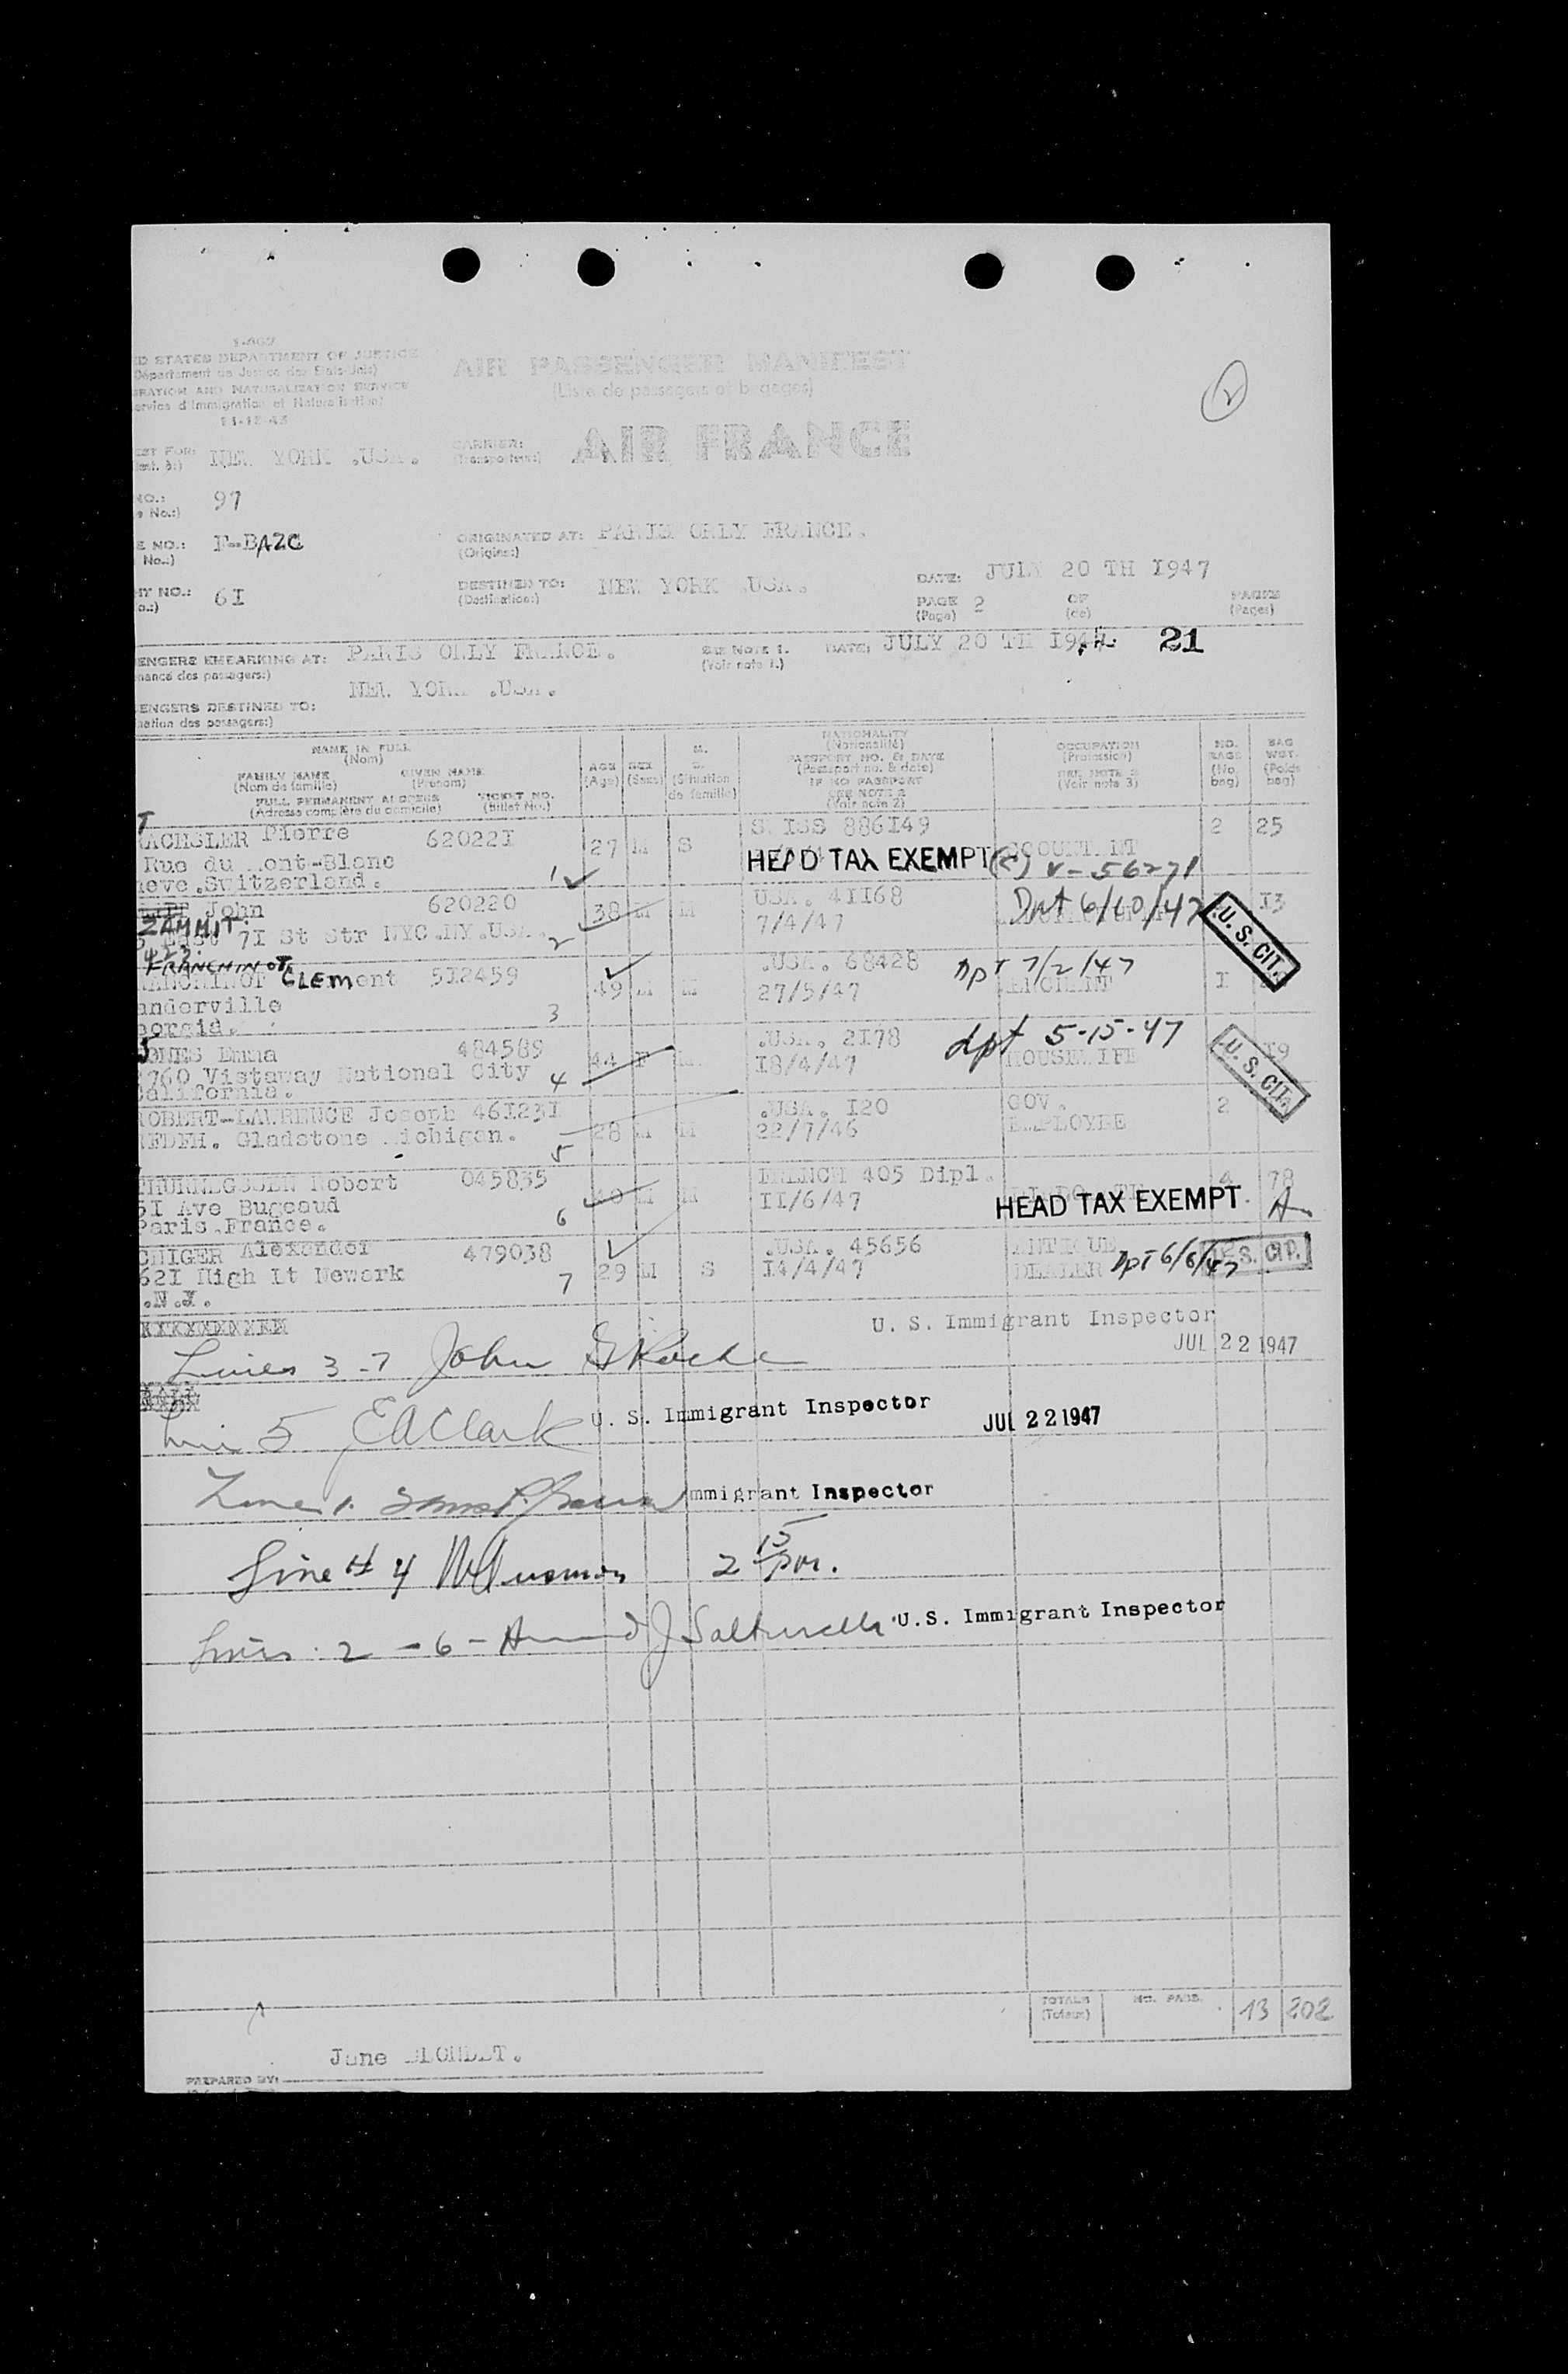 I-466
ED STATES DEPARTMENT OF JUSTICE
(Département de Justice des Etats-Unis)
GRATION AND NATURALIZATION SERVICE
ervice d'Immigration et Naturalisation)
11-12-43
AIR PASSENGER MANIFEST
(Liste de passagers et bagages)
2
EST FOR: NEW YORK .USA.
CARRIER: AIR FRANCE
(Transporteur:)
NO.: 97
e No.:)
E NO.: F-BAZC
No.:)
ORIGINATED AT: PARIS ORLY FRANCE.
(Origine:)
HT NO.: 6I
o.:)
DESTINED TO: NEW YORK .USA.
(Destination:)
DATE: JULY 20 TH I947
PAGE 2 OF PAGES
(Page) (de) (Pages)
ENGERS EMBARKING AT: PARIS ORLY FRANCE.
nance des passagers:)
SEE NOTE 1.
(Voir note 1.)
DATE: JULY 20 TH I947. 21
NEW YORK .USA.
ENGERS DESTINED TO:
nation des passagers:)
NAME IN FULL
(Nom)
FAMILY NAME GIVEN NAME
(Nom de famille) (Prenom)
FULL PERMANENT ADDRESS TICKET NO.
(Adresse complète du domicile) (Billet No.)
AGE
(Age)
SEX
(Sexe)
M.
S.
(Situation
de famille)
NATIONALITY
(Nationalité)
PASSPORT NO. & DATE
(Passport no. & date)
IF NO PASSPORT
SEE NOTE 2
(Voir note 2)
OCCUPATION
(Profession)
SEE NOTE 3
(Voir note 3)
NO.
BAGS
(No.
bag)
BAG
WGT.
(Poids
bag)
ACHSLER Pierre 62022I 27 M S S. ISS 886I49 2 25
Rue du Mont-Blanc HEAD TAX EXEMPT (C) V-56271
neve.Switzerland. 1
John 620220 38 M M USA. 4II68 Dpt 6/10/47 I3
ZAMMIT 7/4/47 U. S. CIT.
East 7I St Str NYC.NY.USA. 2
423
FRANCHINOT
CLEMent 5I2459 49 M M .USA. 68428 Dpt 7/2/47 I
anderville 27/5/47
eorgia. 3
JONES Emma 484589 44 F M .USA. 2I78 dpt 5-15-47 I9
760 Vistaway National City I8/4/47 HOUSEWIFE U. S. CIT.
California. 4
ROBERT-LAWRENCE Joseph 46I23I 28 M M .USA. I20 GOV. 2
Gladstone Michigan. 22/7/46 EMPLOYEE
5
Robert 045835 40 M M FRENCH 405 Dipl. 4 78
5I Ave Bugeaud II/6/47 HEAD TAX EXEMPT A
Paris.France. 6
Alexander 479038 29 M S .USA. 45656 ANTIQUE
62I High Lt Newark I4/4/47 DEALER Dpt 6/6/47 U. S. CIT.
.N.J. 7
U. S. Immigrant Inspector
JUL 22 1947
Lines 3-7 John G Roche
Line 5 E A Clark U. S. Immigrant Inspector JUL 22 1947
Line 1. mmigrant Inspector
Line # 4 2 15 pm.
Lines 2 - 6 - U.S. Immigrant Inspector
TOTALS NO. PASS. 13 202
(Totaux)
Jane BLONDET.
PREPARED BY: